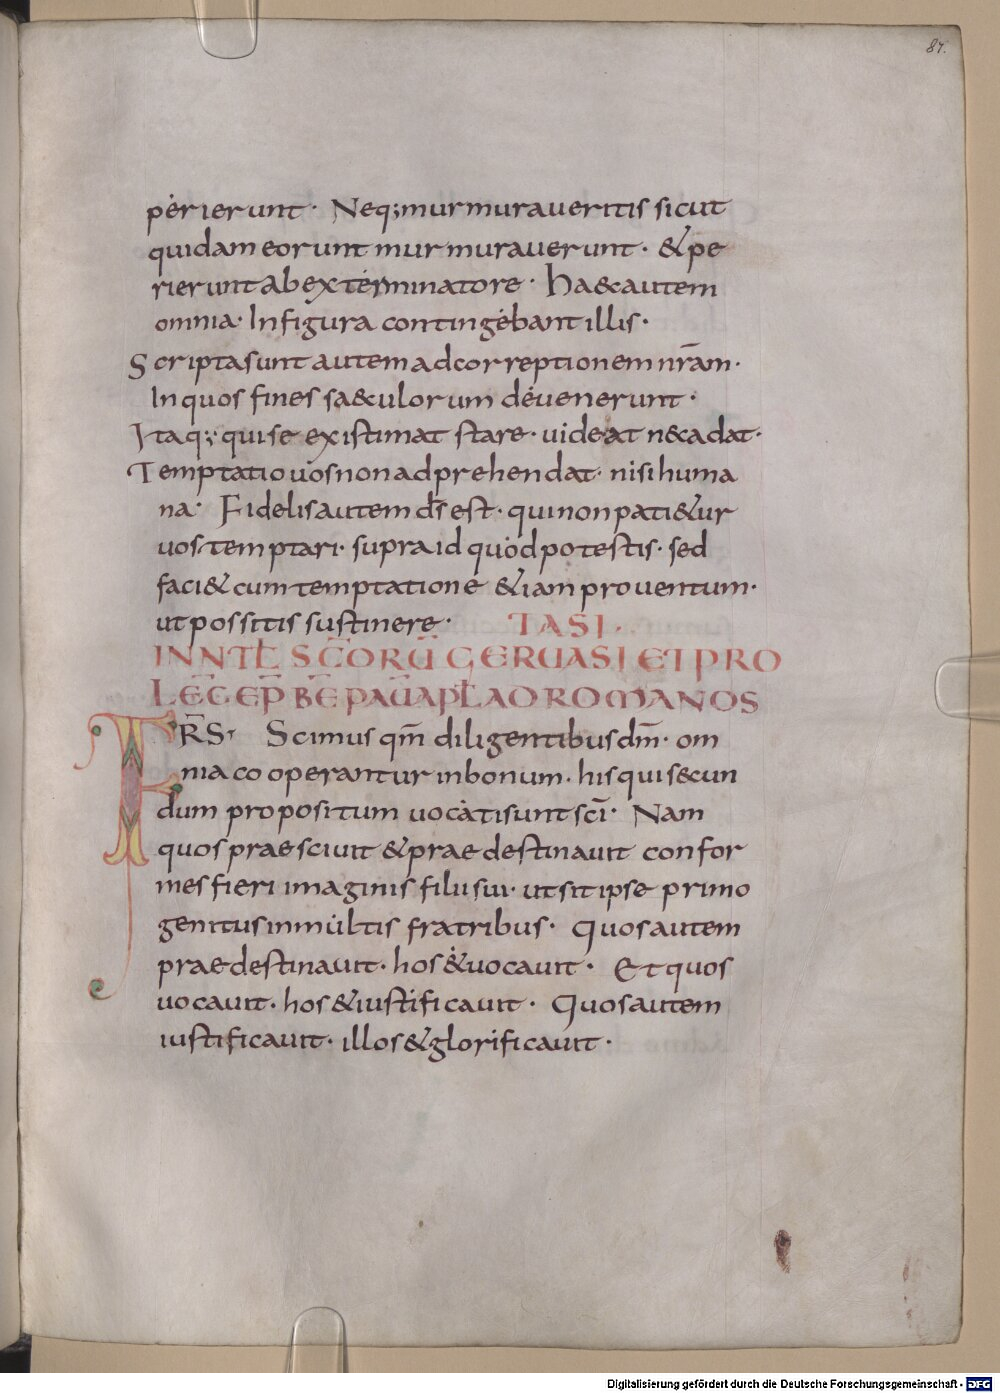 87.
perierunt· Neq;murmuraueritis sicut
quidam eorunt murmurauerunt· &pe
rierunt ab exterminatore· Ha&autem
omnia· In figura contingebant illis·
Scripta sunt autem ad correptionem nr̄am·
In quos fines sa&ulorum deuenerunt·
Itaq; qui se existimat stare· uideat n&cadat·
Temptatio uos non adprehendat· nisi huma
na· Fidelis autem d̄s est· qui non pati&ur
uos temptari· supra id quod potestis· sed
faci& cum temptatione &iam prouentum·
ut possitis sustinere· TASI·
IN NT̄L SC̄ORŪ GERUASI ET PRO
LEC̄ EP̄ BĒ PAŪ APL̄ AD ROMANOS
FR̄S· Scimus qm̄ diligentibus dm̄· om
nia cooperantur in bonum· his qui secun
dum propositum uocati sunt sc̄i· Nam
quos praesciuit &praedestinauit confor
mes fieri imaginis filii sui· ut sit ipse primo
genitus in multis fratribus· Quos autem
praedestinauit· hos &uocauit· Et quos
uocauit· hos &iustificauit· Quos autem
iustificauit· illos &glorificauit·
Digitalisierung gefördert durch die Deutsche Forschungsgemeinschaft - DFG